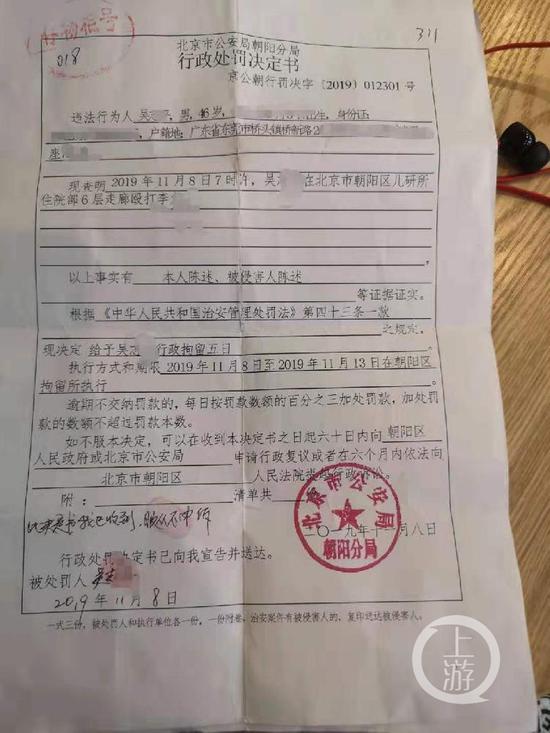 018
311
北京市公安局朝阳分局
行政处罚决定书
京公朝行罚决字〔2019〕012301号
违法行为人 吴 男, 46岁, 出生, 身份证
户籍地: 广东省东莞市桥头镇桥新路2
座
现查明 2019年11月8日7时许, 吴 在北京市朝阳区儿研所
住院部6层走廊殴打李
以上事实有 本人陈述、被侵害人陈述
等证据证实。
根据《中华人民共和国治安管理处罚法》第四十三条一款
之规定,
现决定 给予吴 行政拘留五日
执行方式和期限 2019年11月8日至2019年11月13日在朝阳区
拘留所执行
逾期不交纳罚款的, 每日按罚款数额的百分之三加处罚款, 加处罚
款的数额不超过罚款本数。
如不服本决定, 可以在收到本决定书之日起六十日内向 朝阳区
人民政府或北京市公安局 申请行政复议或者在六个月内依法向
北京市朝阳区 人民法院提起行政诉讼。
附: 清单共
北京市公安局
朝阳分局
二〇一九年十一月八日
行政处罚决定书已向我宣告并送达。
被处罚人 吴
2019年11月8日
一式三份, 被处罚人和执行单位各一份, 一份附卷。治安案件有被侵害人的, 复印送达被侵害人。
上游